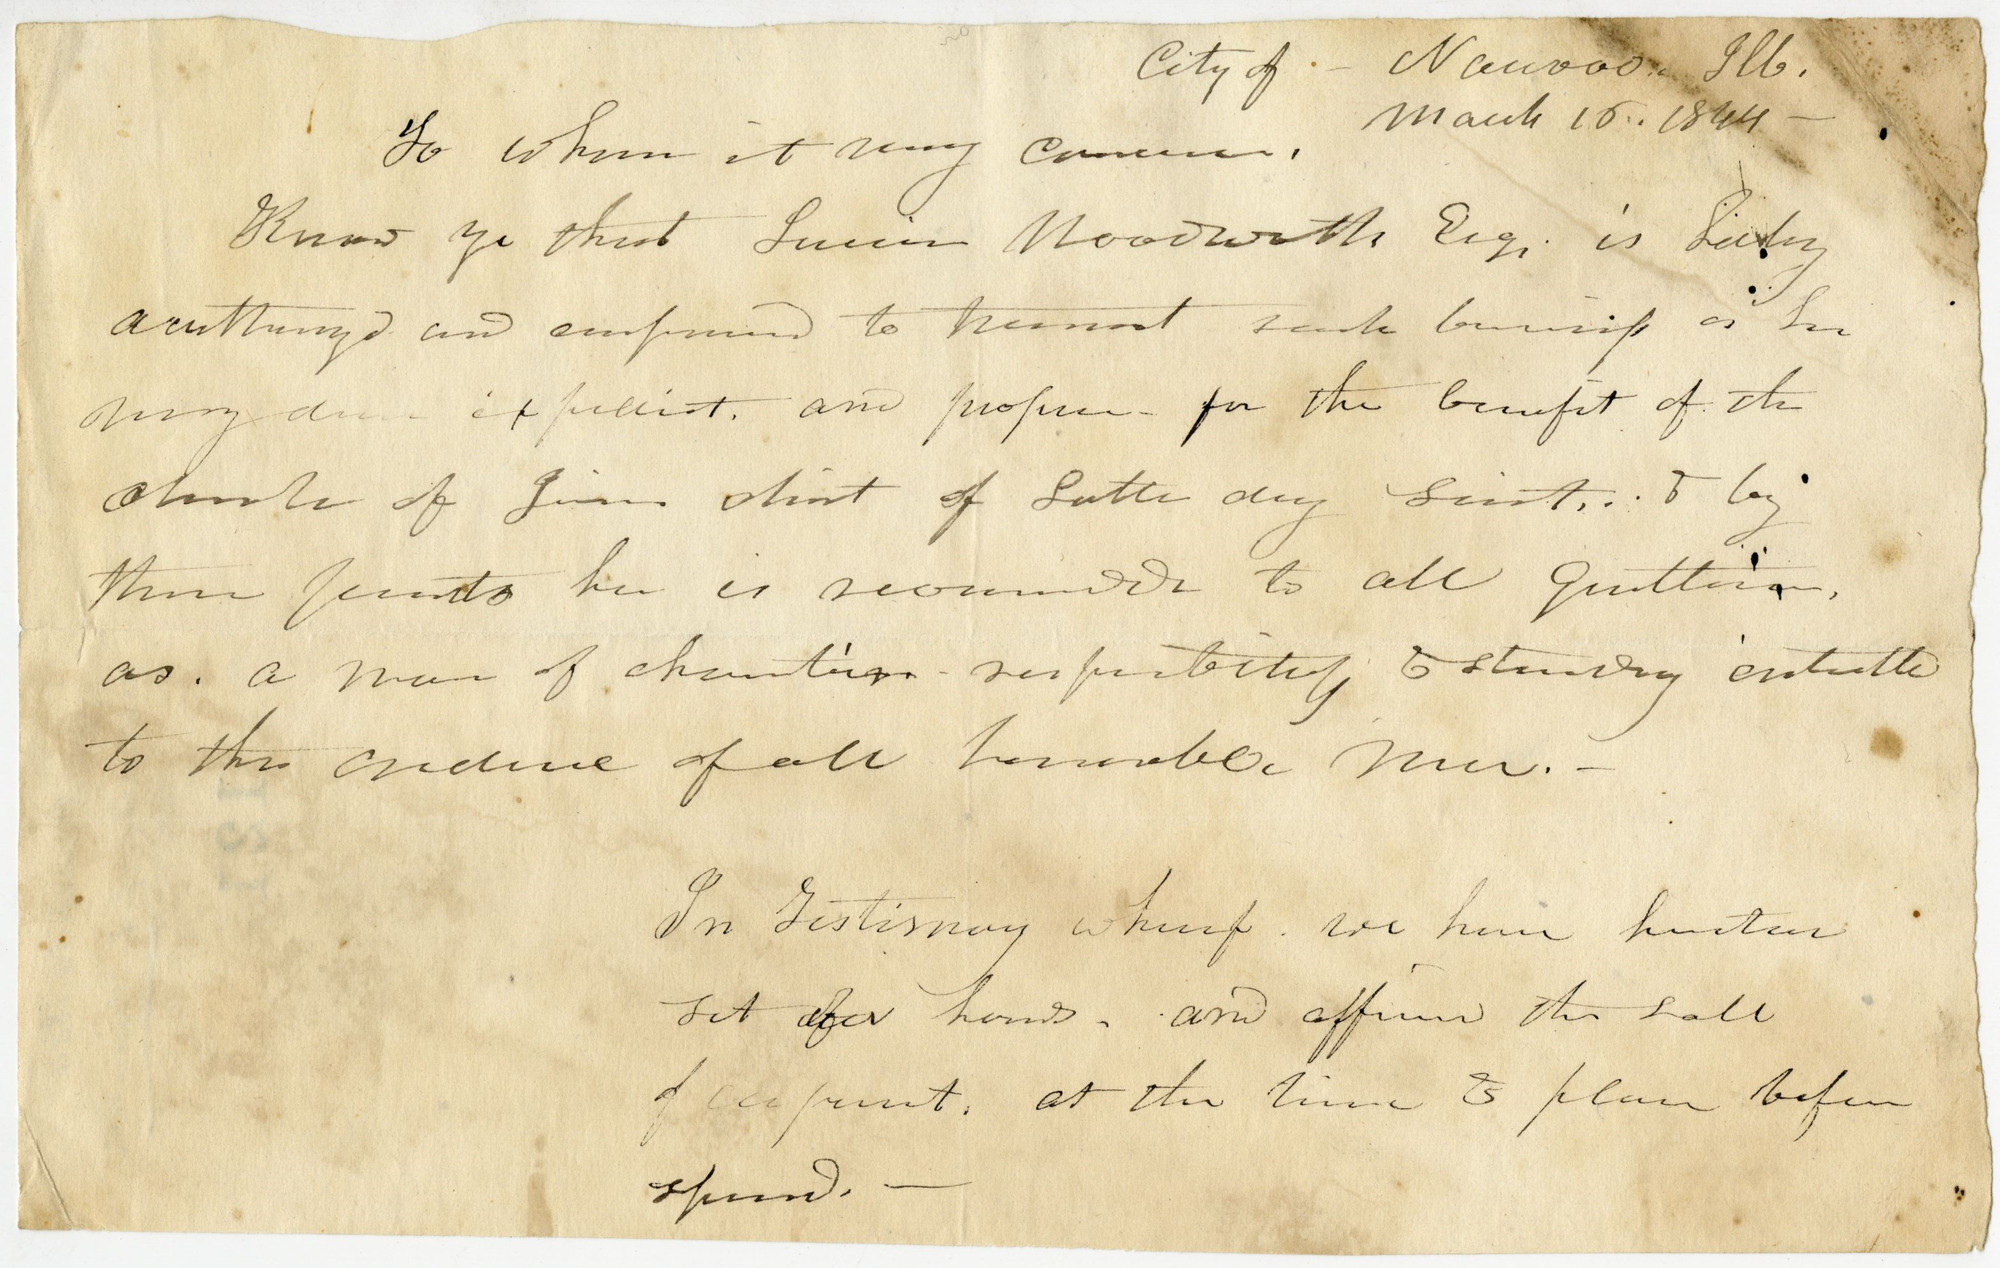 City of – Nauvoo. Ill.
March 15. 1844 –
To whom it may concern.
Know ye that Lucien Woodworth Esqr. is
and to transact such business as he
may deem expedient. and proper – for the benefit of the
church of Jesus christ of Latter day Saints. & by
these presents he is recommended to all
as. a man of respectability & standing entitled
to the credence of all honorable men. –
In Testimony whereof. we have hereunto
set our hands. and affixed the seal
of at the time & place before